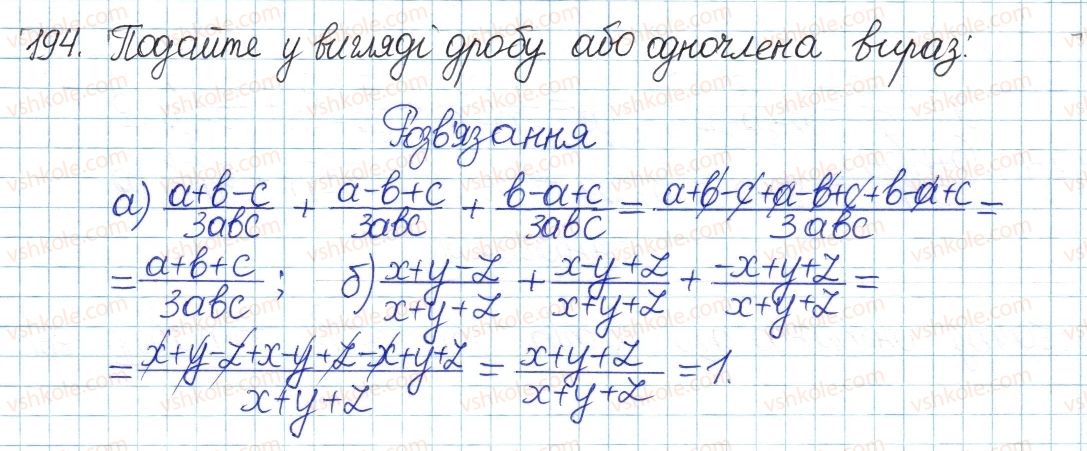 194. Подайте у вигляді дробу або одночлена вираз:
Розв'язання
а) (a+b-c)/(3abc) + (a-b+c)/(3abc) + (b-a+c)/(3abc) = (a+b-c+a-b+c+b-a+c)/(3abc) =
= (a+b+c)/(3abc); б) (x+y-z)/(x+y+z) + (x-y+z)/(x+y+z) + (-x+y+z)/(x+y+z) =
= (x+y-z+x-y+z-x+y+z)/(x+y+z) = (x+y+z)/(x+y+z) = 1.
vshkole.com